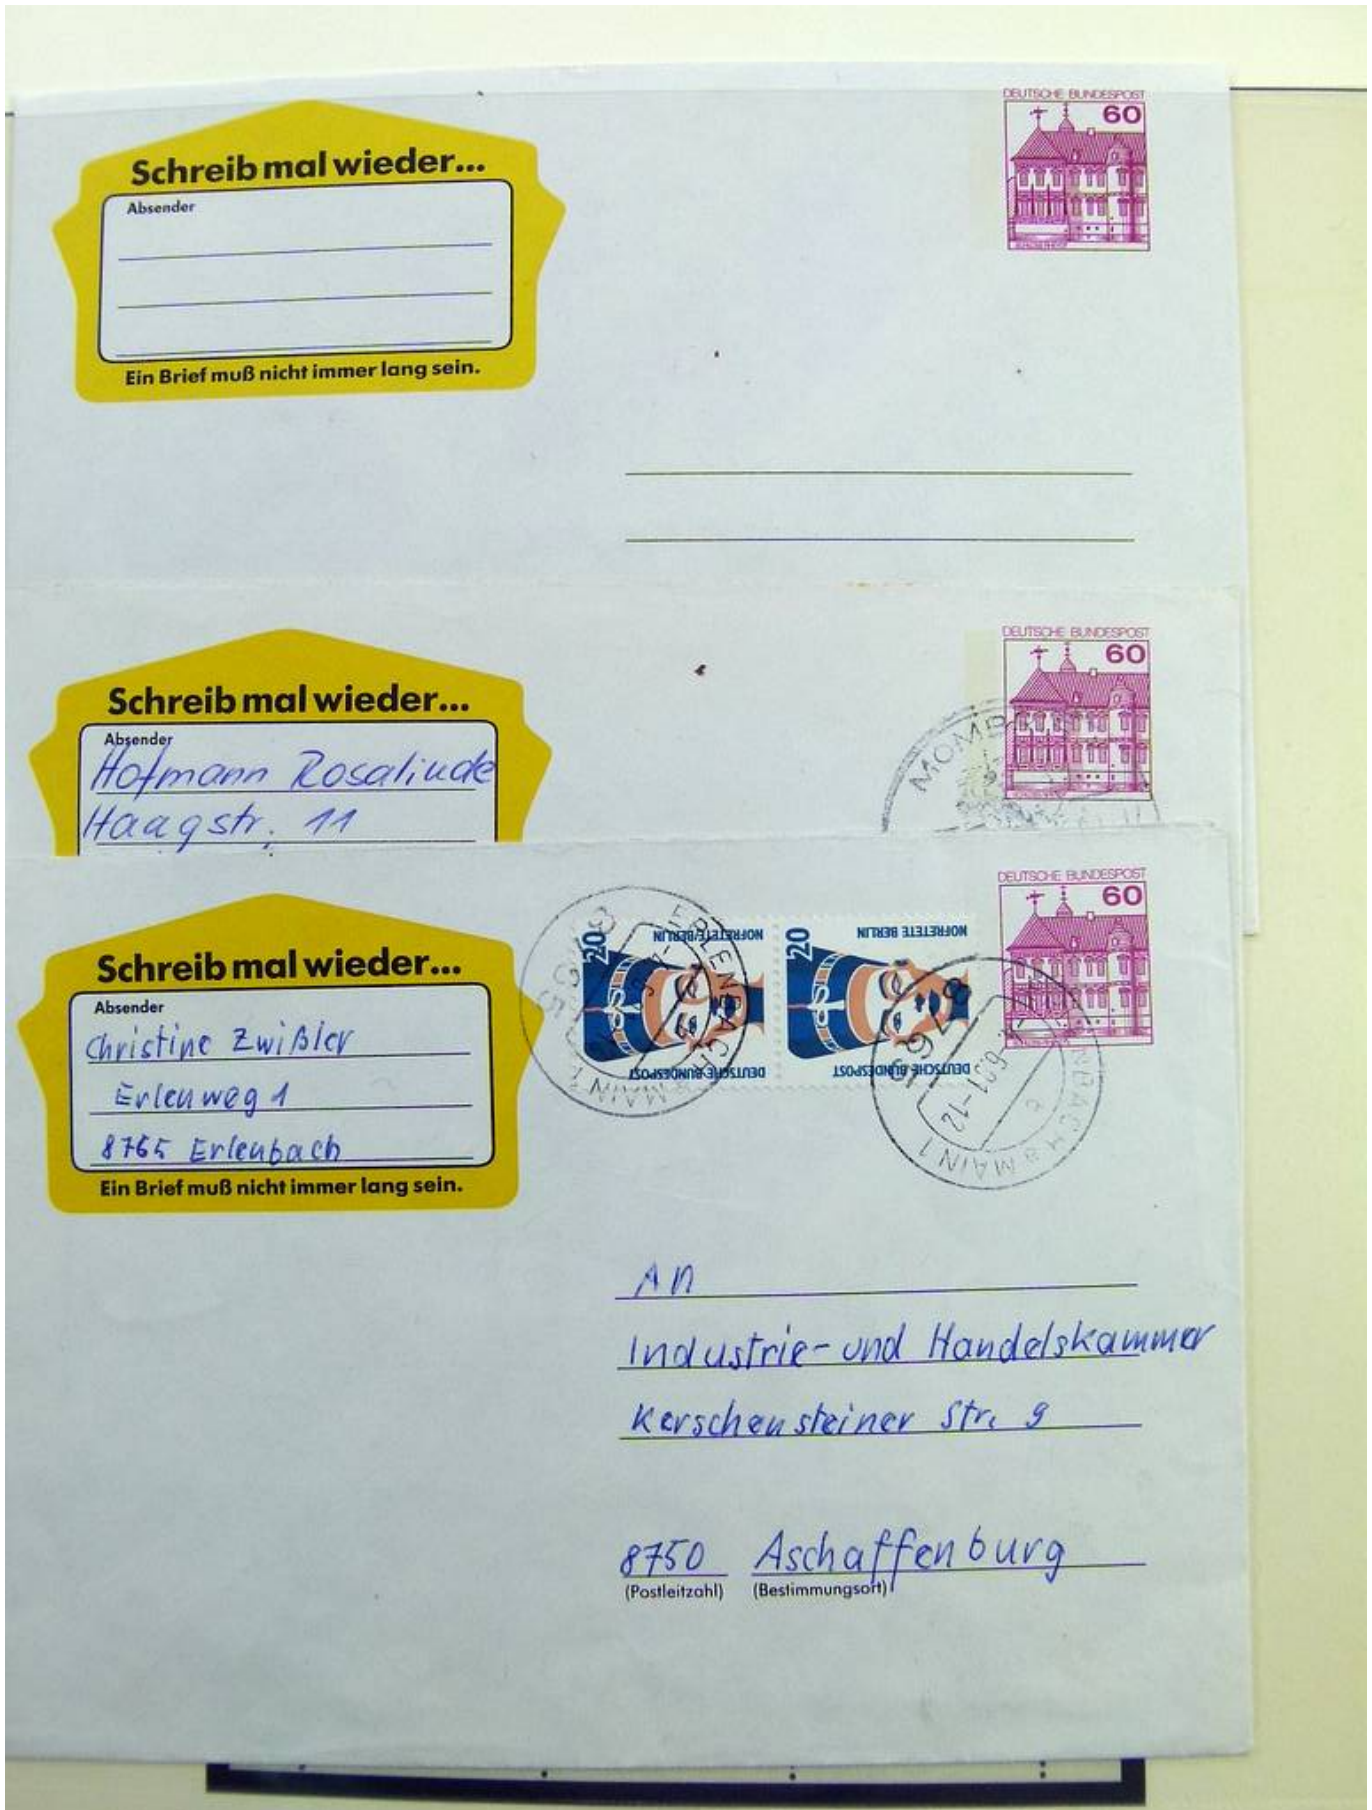 DEUTSCHE BUNDESPOST
60
Schreib mal wieder...
Absender
Ein Brief muß nicht immer lang sein.
DEUTSCHE BUNDESPOST
60
Schreib mal wieder...
Absender
Hofmann Rosalinde
Haagstr. 11
DEUTSCHE BUNDESPOST
60
20
NOFRETETE BERLIN
DEUTSCHE BUNDESPOST
20
NOFRETETE BERLIN
DEUTSCHE BUNDESPOST
ERLENBACH A MAIN 1
8765
MAIN 1
Schreib mal wieder...
Absender
Christine Zwißler
Erlenweg 1
8765 Erlenbach
Ein Brief muß nicht immer lang sein.
An
Industrie- und Handelskammer
Kerschensteiner Str. 9
8750 Aschaffenburg
(Postleitzahl) (Bestimmungsort)